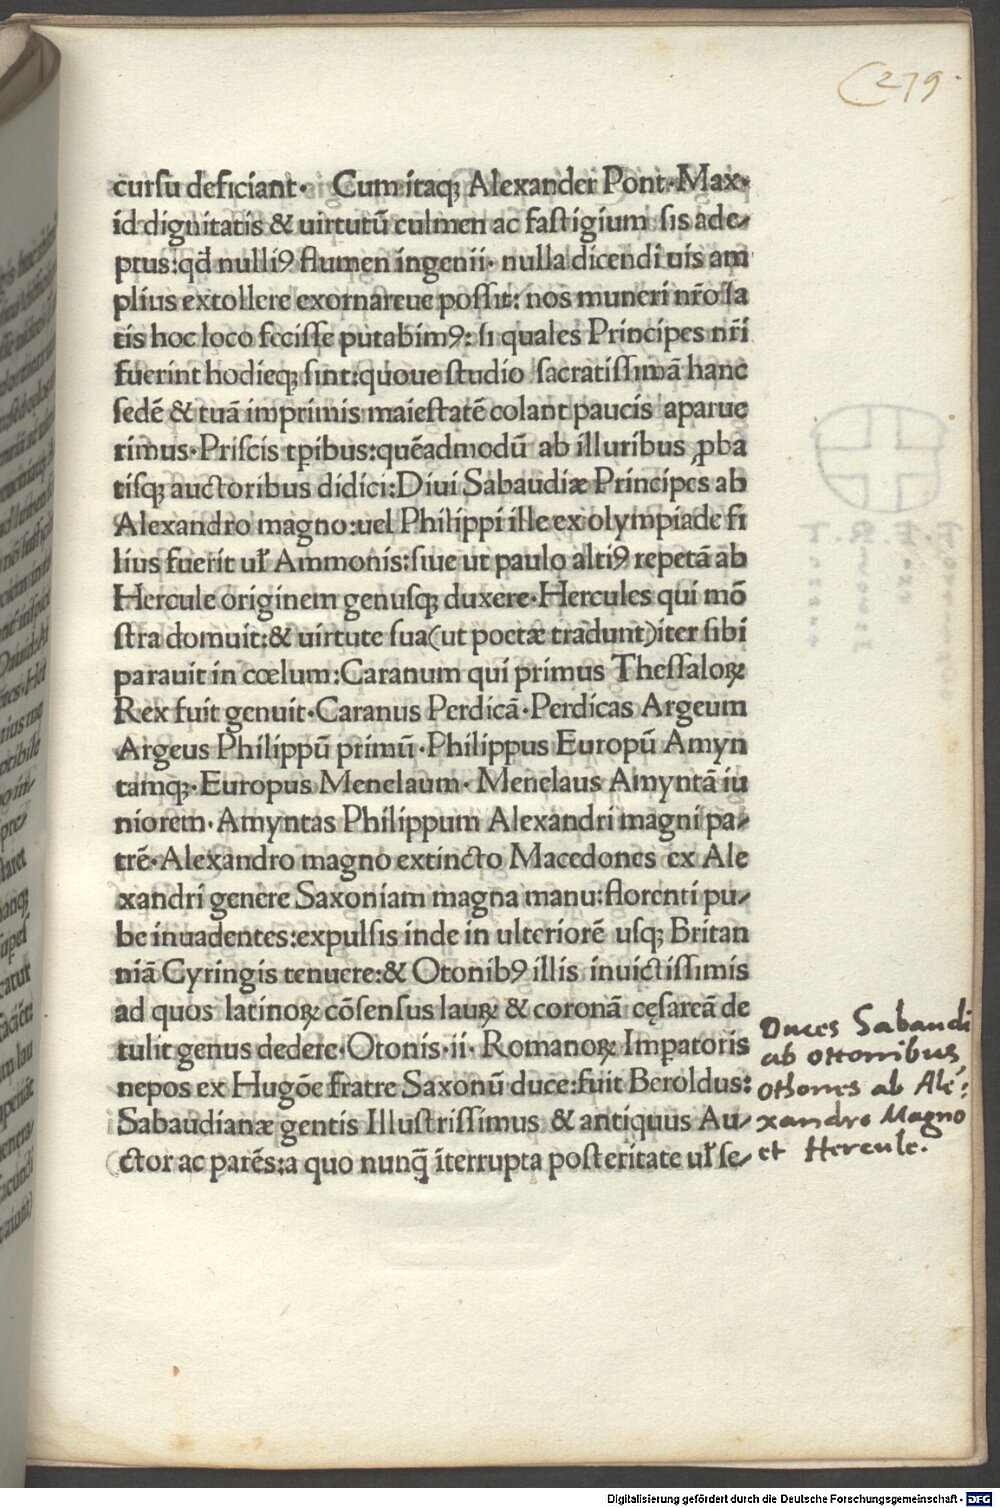 (279.
curſu deficiant· Cum itaqꝫ Alexander Pont·Max·
id dignitatis & uirtutū culmen ac faſtigium ſis ade⸗
ptus:qđ nulliꝰ flumen ingenii· nulla dicendi uis am
plius extollere exornareue poſſit: nos muneri nr̄o ſa
tis hoc loco feciſſe putabimꝰ: ſi quales Principes nr̄i
fuerint hodieqꝫ ſint:quoue ſtudio ſacratiſſimā hanc
ſedē & tuā imprimis maieſtatē colant paucis aparue
rimus·Priſcis tꝑibus:quēadmodū ab illuribus ꝓba
tiſqꝫ auctoribus didici:Diui Sabaudiæ Principes ab
Alexandro magno:uel Philippi ille ex olympiade fi
lius fuerit uł Ammonis:ſiue ut paulo altiꝰ repetā ab
Hercule originem genuſqꝫ duxere·Hercules qui mō
ſtra domuit:& uirtute ſua(ut poetæ tradunt)iter ſibi
parauit in cœlum:Caranum qui primus Theſſaloꝝ
Rex fuit genuit·Caranus Perdicā·Perdicas Argeum
Argeus Philippū primū·Philippus Europū Amyn
tamqꝫ·Europus Menelaum·Menelaus Amyntā iu
niorem·Amyntas Philippum Alexandri magni pa⸗
trē·Alexandro magno extincto Macedones ex Ale
xandri genere Saxoniam magna manu:florenti pu⸗
be inuadentes:expulſis inde in ulteriorē uſqꝫ Britan
niā Cyringis tenuere:& Otonibꝰ illis inuictiſſimis
ad quos latinoꝝ cōſenſus lauꝝ & coronā cęſareā de
tulit genus dedere·Otonis·ii·Romanoꝝ Imꝑatoris
nepos ex Hugōe fratre Saxonū duce:fuit Beroldus:
Sabaudianæ gentis Illuſtriſſimus & antiquus Au⸗
ctor ac parēs:a quo nunq̄ īterrupta poſteritate uł ſe⸗
Duces Sabaudi
ab ottonibus
Othones ab Ale⸗
xandro Magno
et Hercule.
Digitalisierung gefördert durch die Deutsche Forschungsgemeinschaft · DFG